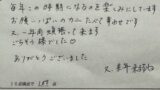 毎年この時期になるのを楽しみにしています
お腹いっぱいのカニ たべて幸せです
又一年間頑張って来ます
ごちそう様でした
ありがとうございました
又、来年来ます